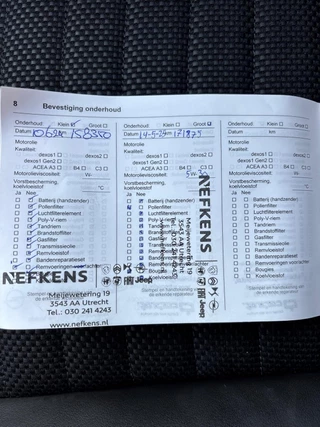 8 Bevestiging onderhoud
Onderhoud: Klein Groot
Datum km 158350
Motorolie
Kwaliteit:
dexos1 dexos2
dexos1 Gen2
ACEA A3 B4 C3
Motorolieviscositeit: W-
Vorstbescherming,
koelvloeistof °C
Ja Nee
Batterij (handzender)
Pollenfilter
Luchtfilterelement
Poly-V-riem
Tandriem
Brandstoffilter
Gasfilter
Transmissieolie
Remvloeistof
Bandenreparatieset
Remvoeringen voor/achter
NEFKENS
Meijewetering 19
3543 AA Utrecht
Tel.: 030 241 4243
www.nefkens.nl
Onderhoud: Klein Groot
Datum 14-5-24 km 171875
Motorolie
Kwaliteit:
dexos1 dexos2
dexos1 Gen2
ACEA A3 B4 C3
Motorolieviscositeit: 5W-30
Vorstbescherming,
koelvloeistof
Ja Nee
Batterij (handzender)
Pollenfilter
Luchtfilterelement
Poly-V-riem
Tandriem
Brandstoffilter
Gasfilter
Transmissieolie
Remvloeistof
Bandenreparatieset
Remvoeringen voor/achter
Bougies
Koelvloeistof
Stempel en handtekening van
de erkende reparateur
NEFKENS
Meijewetering 19
3543 AA Utrecht
Jeep
Onderhoud: Klein Groot
Datum km
Motorolie
Kwaliteit:
dexos1 dexos2
dexos1 Gen2
ACEA A3 B4 C3
Motorolieviscositeit:
Vorstbescherming,
koelvloeistof
Ja Nee
Batterij (handzender)
Pollenfilter
Luchtfilterelement
Poly-V-riem
Tandriem
Brandstoffilter
Gasfilter
Transmissieolie
Remvloeistof
Bandenreparatieset
Remvoeringen voor/achter
Bougies
Koelvloeistof
Stempel en handtekening van
de erkende reparateur